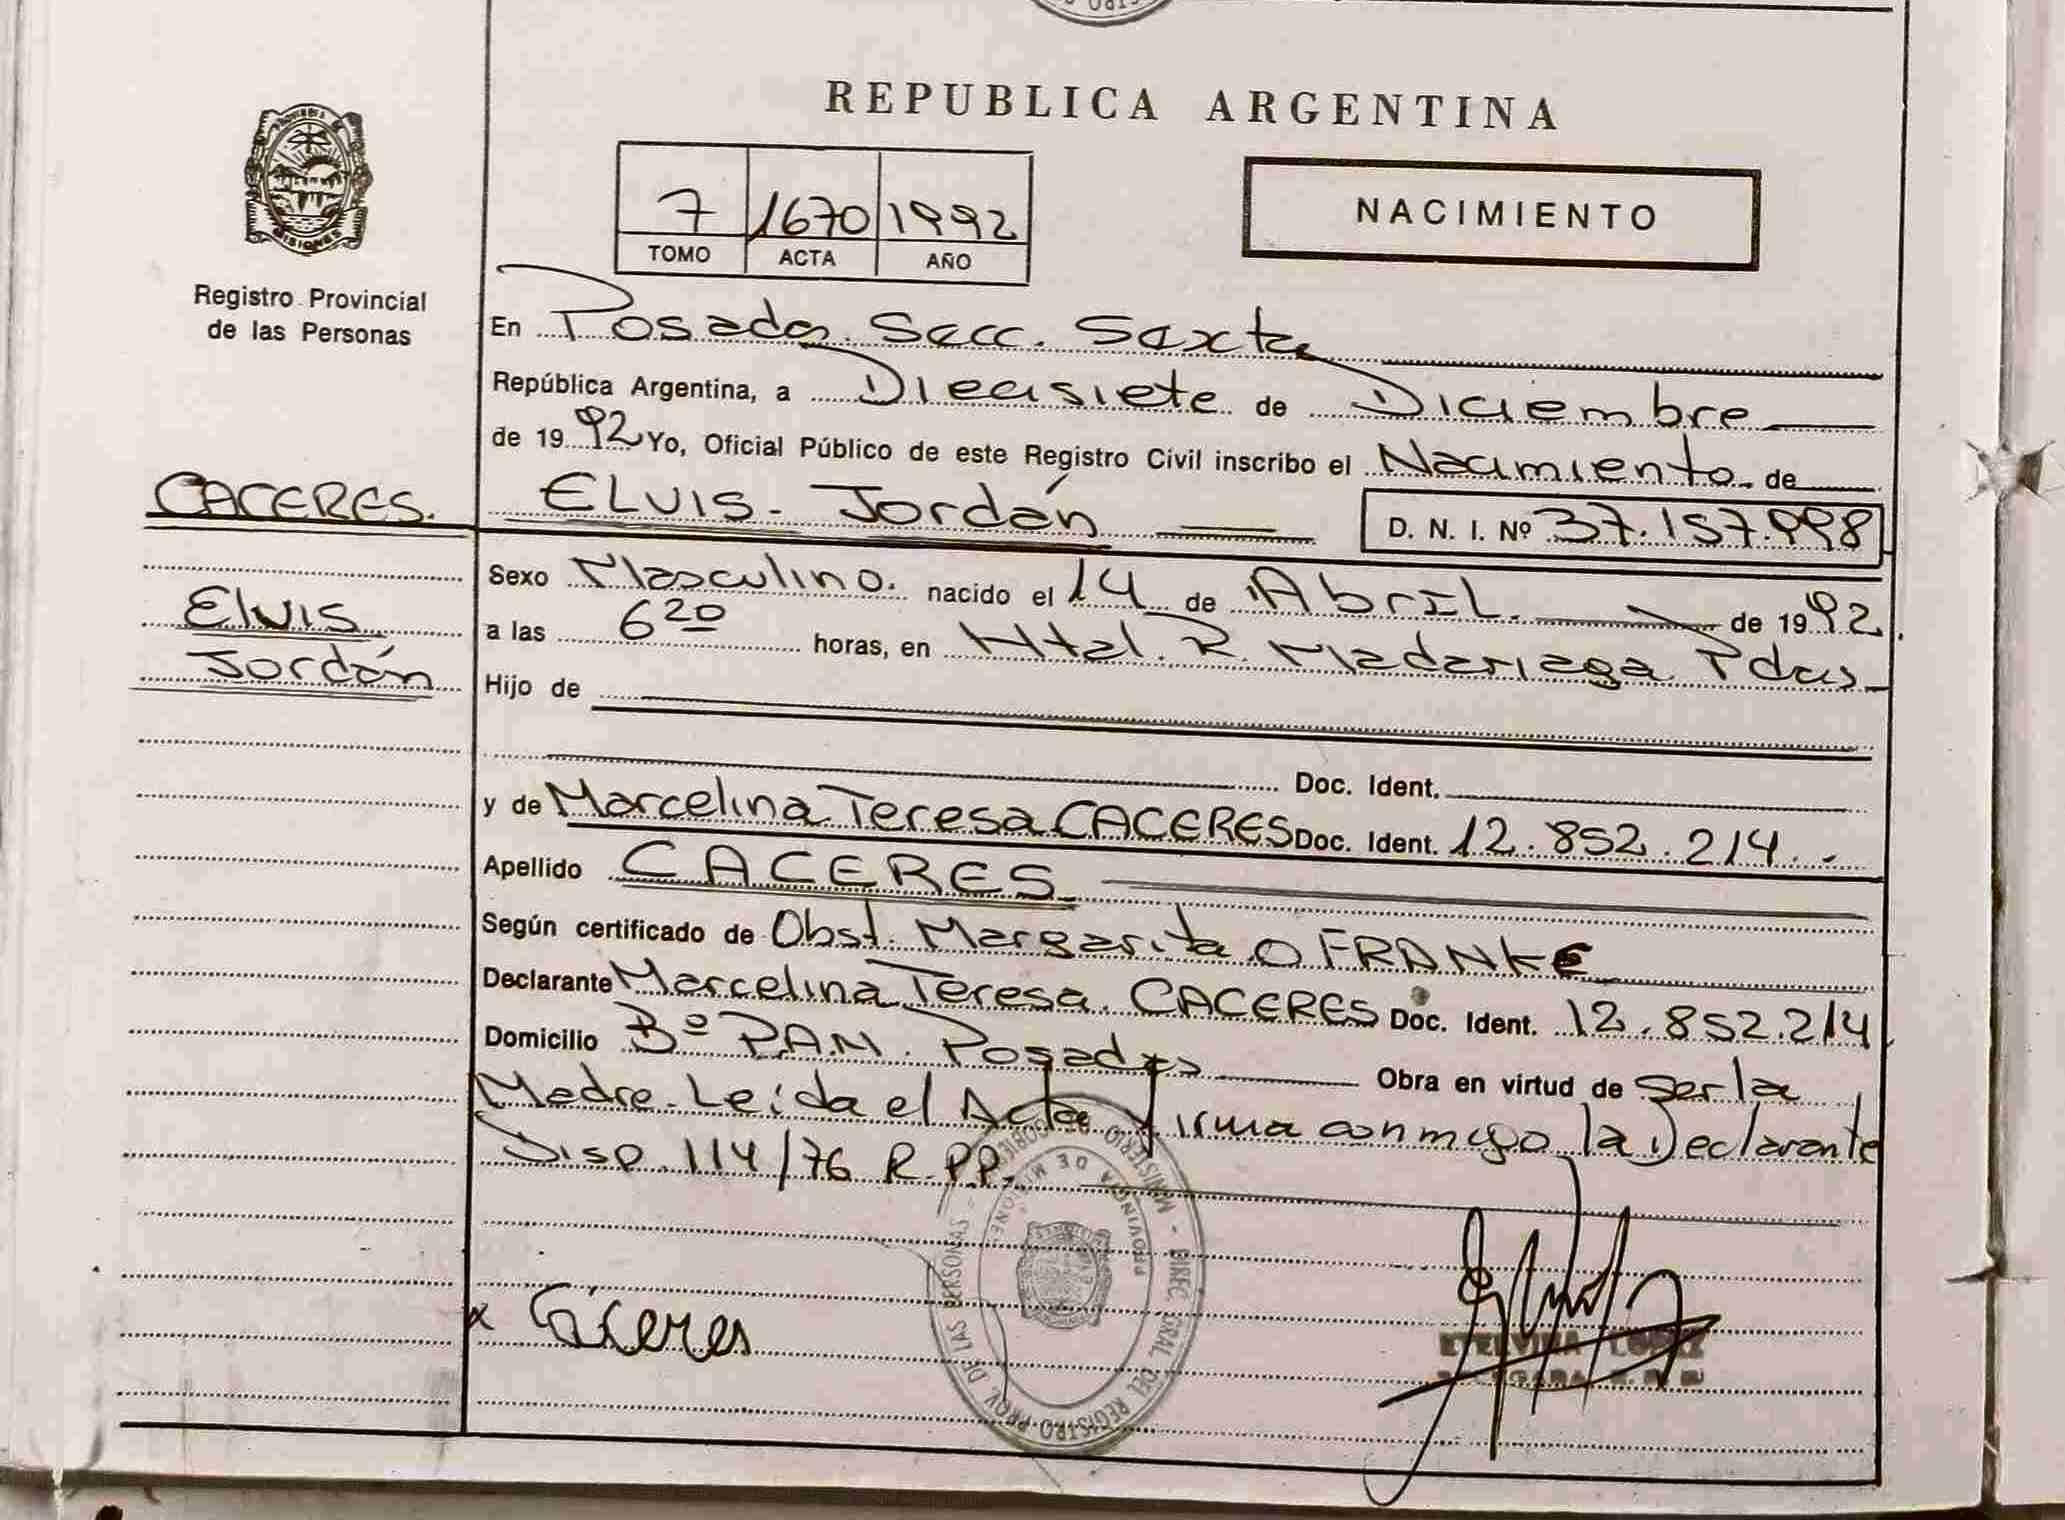 REPUBLICA ARGENTINA
PROVINCIA DE
MISIONES
Registro Provincial
de las Personas
7 1670 1992
TOMO ACTA AÑO
NACIMIENTO
En Posadas Secc. Sexta
República Argentina, a Diecisiete de Diciembre
de 1992 Yo, Oficial Público de este Registro Civil inscribo el Nacimiento de
CACERES.
ELVIS - Jordán D. N. I. Nº 37.157.998
Elvis
Jordán
Sexo Masculino. nacido el 14 de Abril de 1992.
a las 6 20 horas, en Htal. R. Madariaga Pdas
Hijo de
Doc. Ident.
y de Marcelina Teresa CACERES Doc. Ident. 12.852.214
Apellido CACERES
Según certificado de Obst. Margarita O FRANKE
Declarante Marcelina Teresa CACERES Doc. Ident. 12.852.214
Domicilio Bº P.A.N. Posadas Obra en virtud de ser la
Madre. Leída el Acta firma conmigo la Declarante
Disp. 114/76 R.P.P.
MINISTERIO DE GOBIE - DIREC. GRAL. DEL REGISTRO PROV. DE LAS PERSONAS -
PROVINCIA DE MISIONES
x Cáceres
ETELVINA LOPEZ